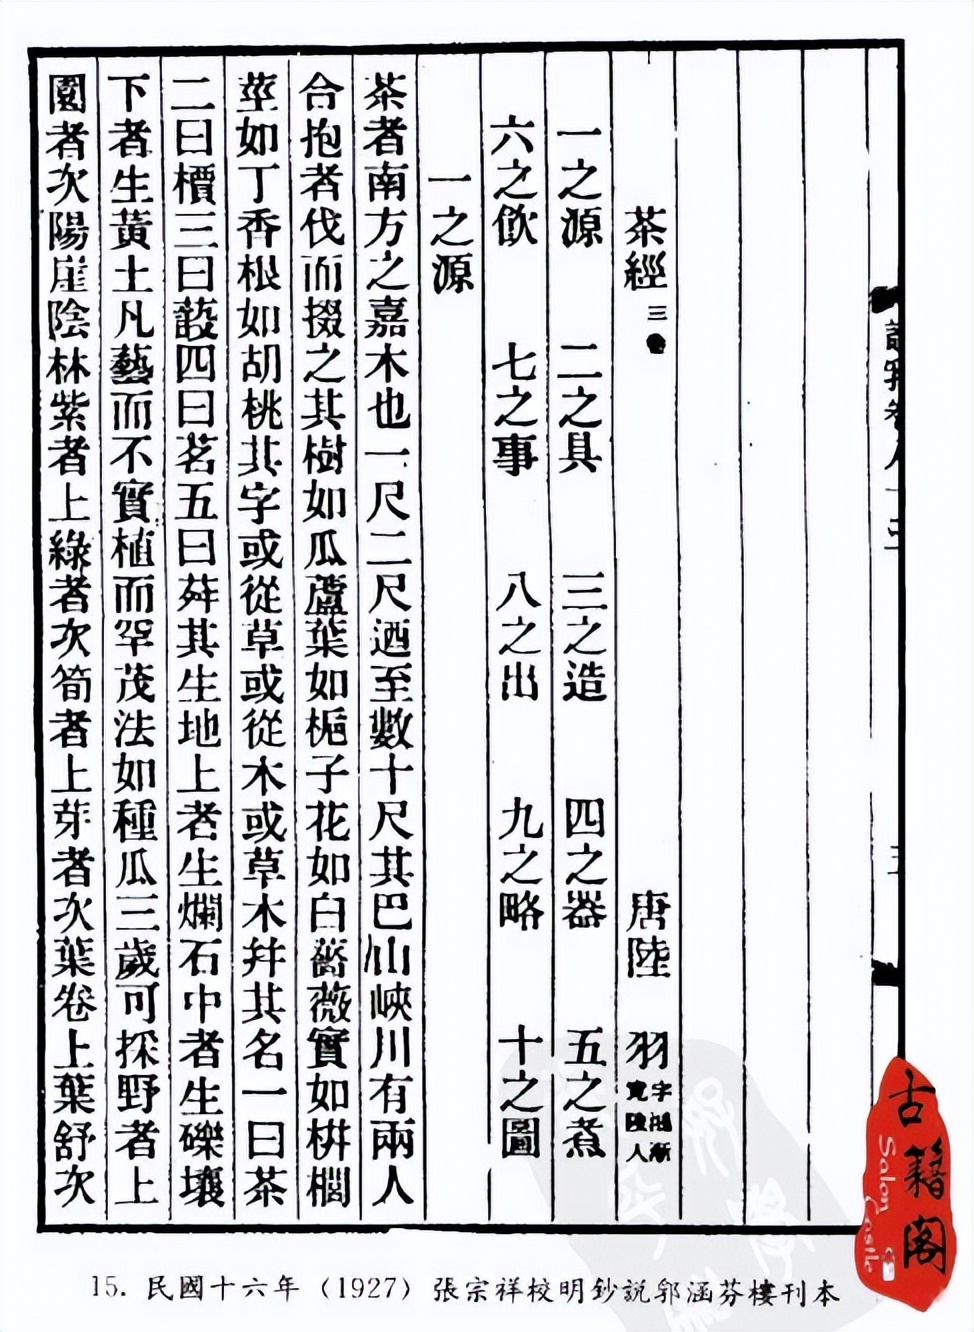 茶經 三卷 唐陸 羽 字鴻漸 竟陵人
一之源 二之具 三之造 四之器 五之煮
六之飲 七之事 八之出 九之略 十之圖
一之源
茶者南方之嘉木也一尺二尺迺至數十尺其巴山峽川有兩人
合抱者伐而掇之其樹如瓜蘆葉如梔子花如白薔薇實如栟櫚
莖如丁香根如胡桃其字或從草或從木或草木幷其名一曰茶
二曰檟三曰蔎四曰茗五曰荈其生地上者生爛石中者生礫壤
下者生黃土凡藝而不實植而罕茂法如種瓜三歲可採野者上
園者次陽崖陰林紫者上綠者次筍者上芽者次葉卷上葉舒次
說郛卷八十三
古籍阁
Salon Castle
15. 民國十六年（1927）張宗祥校明鈔説郛涵芬樓刊本